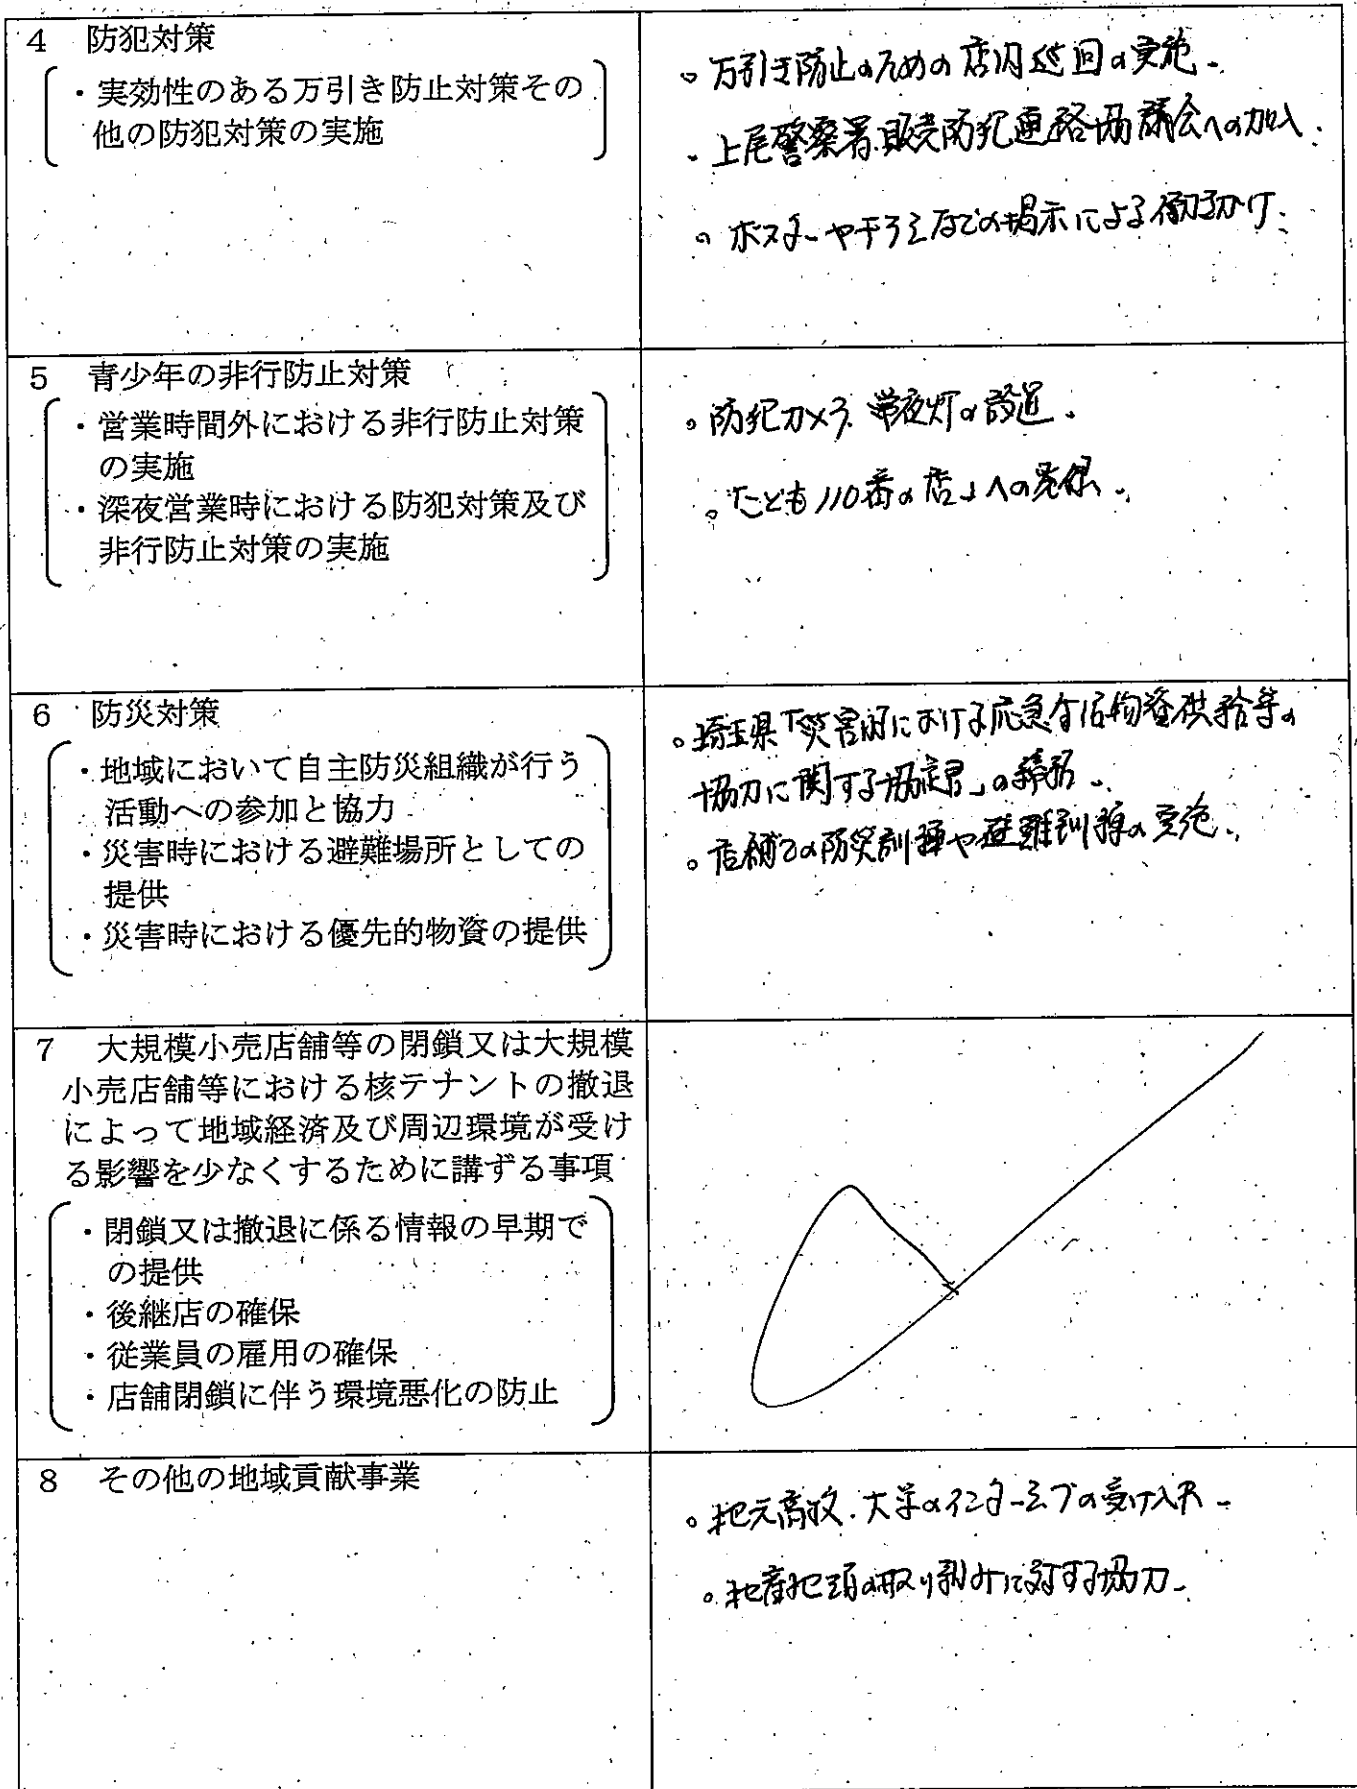 4 防犯対策
・実効性のある万引き防止対策その
他の防犯対策の実施
。万引き防止のための店内巡回の実施.
・上尾警察署.販売防犯連絡協議会への加入.
。ポスターやチラシなどの掲示による働きかけ.
5 青少年の非行防止対策
・営業時間外における非行防止対策
の実施
・深夜営業時における防犯対策及び
非行防止対策の実施
。防犯カメラ. 常夜灯の設置.
。「こども110番の店」への登録.
6 防災対策
・地域において自主防災組織が行う
活動への参加と協力
・災害時における避難場所としての
提供
・災害時における優先的物資の提供
。埼玉県「災害時における応急生活物資供給等の
協力に関する協定書」の締結.
。店舗での防災訓練や避難訓練の実施.
7 大規模小売店舗等の閉鎖又は大規模
小売店舗等における核テナントの撤退
によって地域経済及び周辺環境が受け
る影響を少なくするために講ずる事項
・閉鎖又は撤退に係る情報の早期で
の提供
・後継店の確保
・従業員の雇用の確保
・店舗閉鎖に伴う環境悪化の防止
8 その他の地域貢献事業
。地元高校.大学のインターンシップの受け入れ.
。地産地消の取り組みに対する協力.